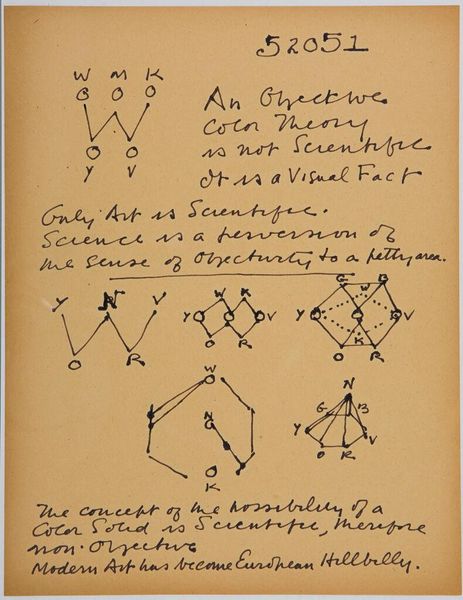 52051
W M K
Y V
An Objective
Color Theory
is not Scientific
It is a Visual Fact
Only Art is Scientific.
Science is a perversion of
the sense of Objectivity to a petty area.
Y N V
O R
W K
Y O V
O R
G B
W
Y O V
K
O R
W
N
K
N
G B
Y V
O R
The concept of the possibility of a
Color Solid is Scientific, therefore
non-Objective
Modern Art has become European Hillbilly.